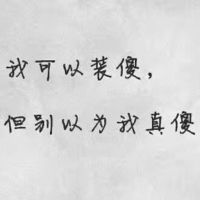 我可以装傻，
但别以为我真傻